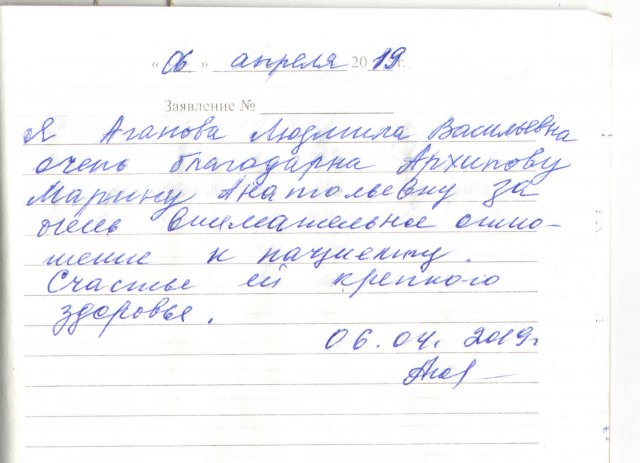 « 06 » апреля 2019 г.
Заявление №
Я Аганова Людмила Васильевна
очень благодарна Архипову
Марину Анатольевну за
очень внимательное отно-
шение к пациенту.
Счастье ей крепкого
здоровья.
06.04.2019г